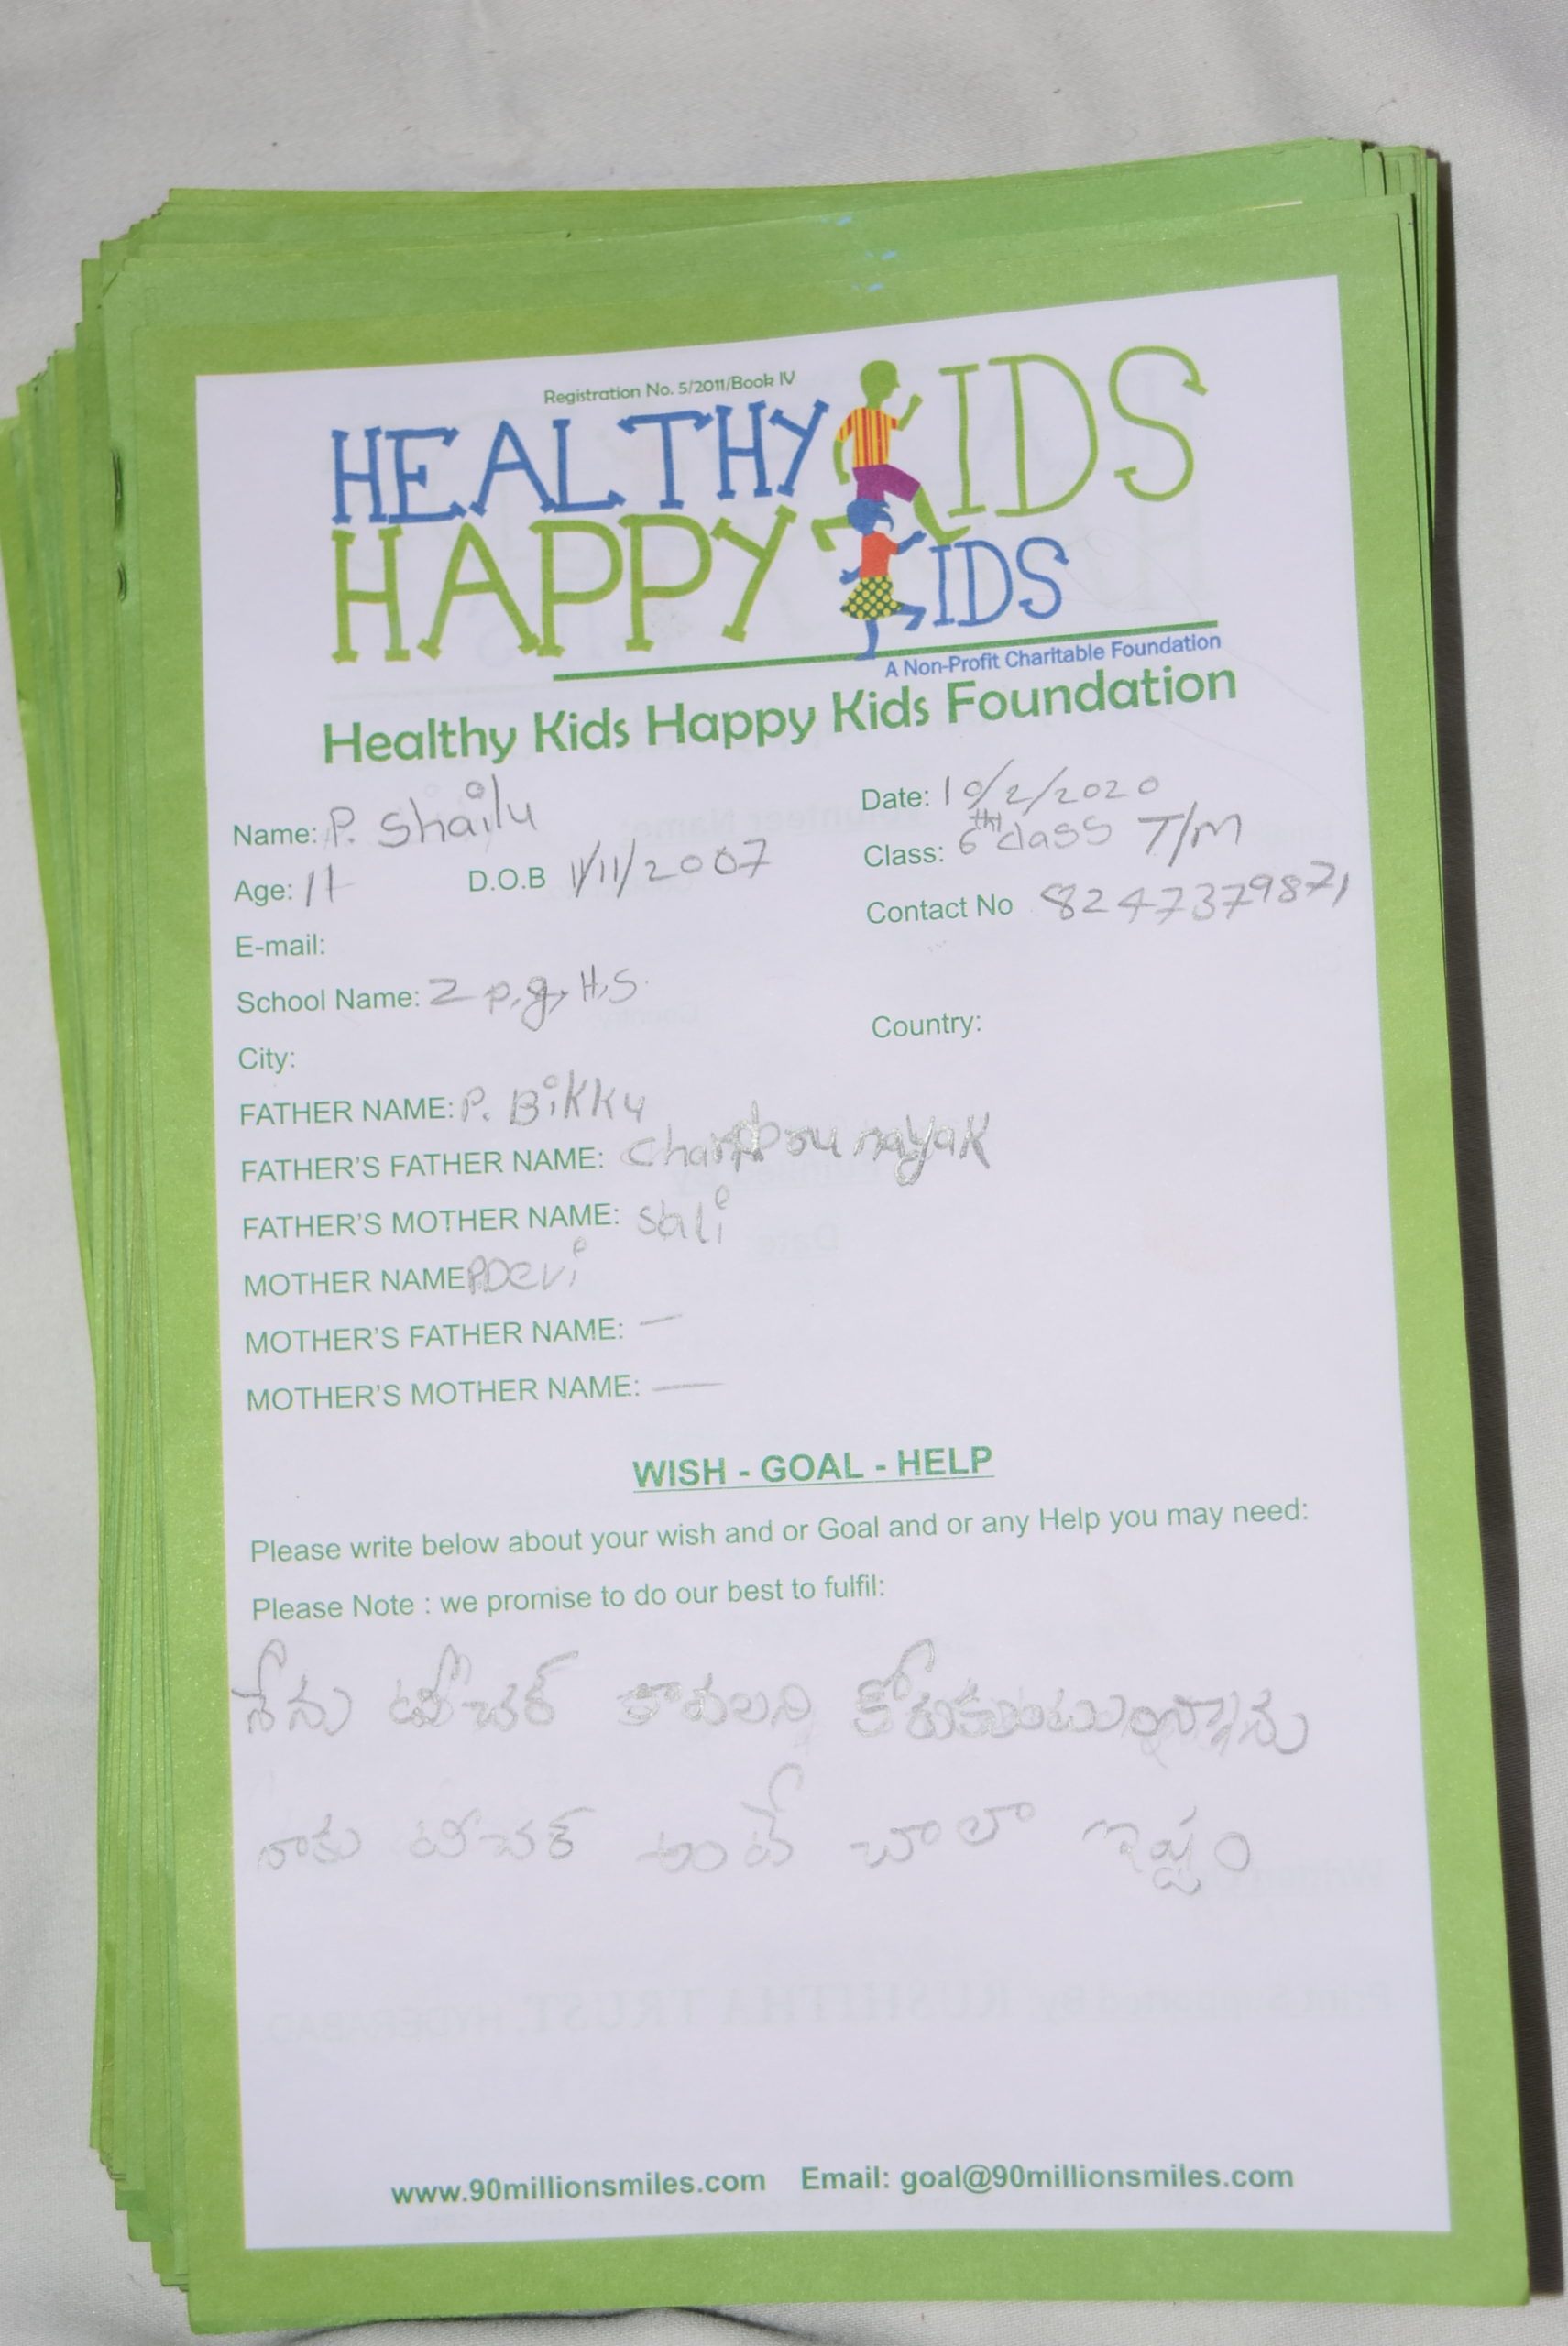 Registration No. 5/2011/Book IV
HEALTHY KIDS
HAPPY KIDS
A Non-Profit Charitable Foundation
Healthy Kids Happy Kids Foundation
Name: P. Shailu
Date: 10/2/2020
Age: 11 D.O.B 11/11/2007
Class: 6th class T/M
Contact No 8247379871
E-mail:
School Name: Z p.g, H.S.
City: Country:
FATHER NAME: P. Bikku
FATHER'S FATHER NAME: nayak
FATHER'S MOTHER NAME: Sali
MOTHER NAME P.Devi
MOTHER'S FATHER NAME: —
MOTHER'S MOTHER NAME: —
WISH - GOAL - HELP
Please write below about your wish and or Goal and or any Help you may need:
Please Note : we promise to do our best to fulfil:
నేను టీచర్ కావలని కోరుకుంటుంన్నాను
నాకు టీచర్ అంటే చాలా ఇష్టం
www.90millionsmiles.com Email: goal@90millionsmiles.com